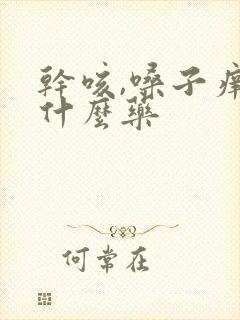 幹咳,嗓子癢
什麼藥
何常在